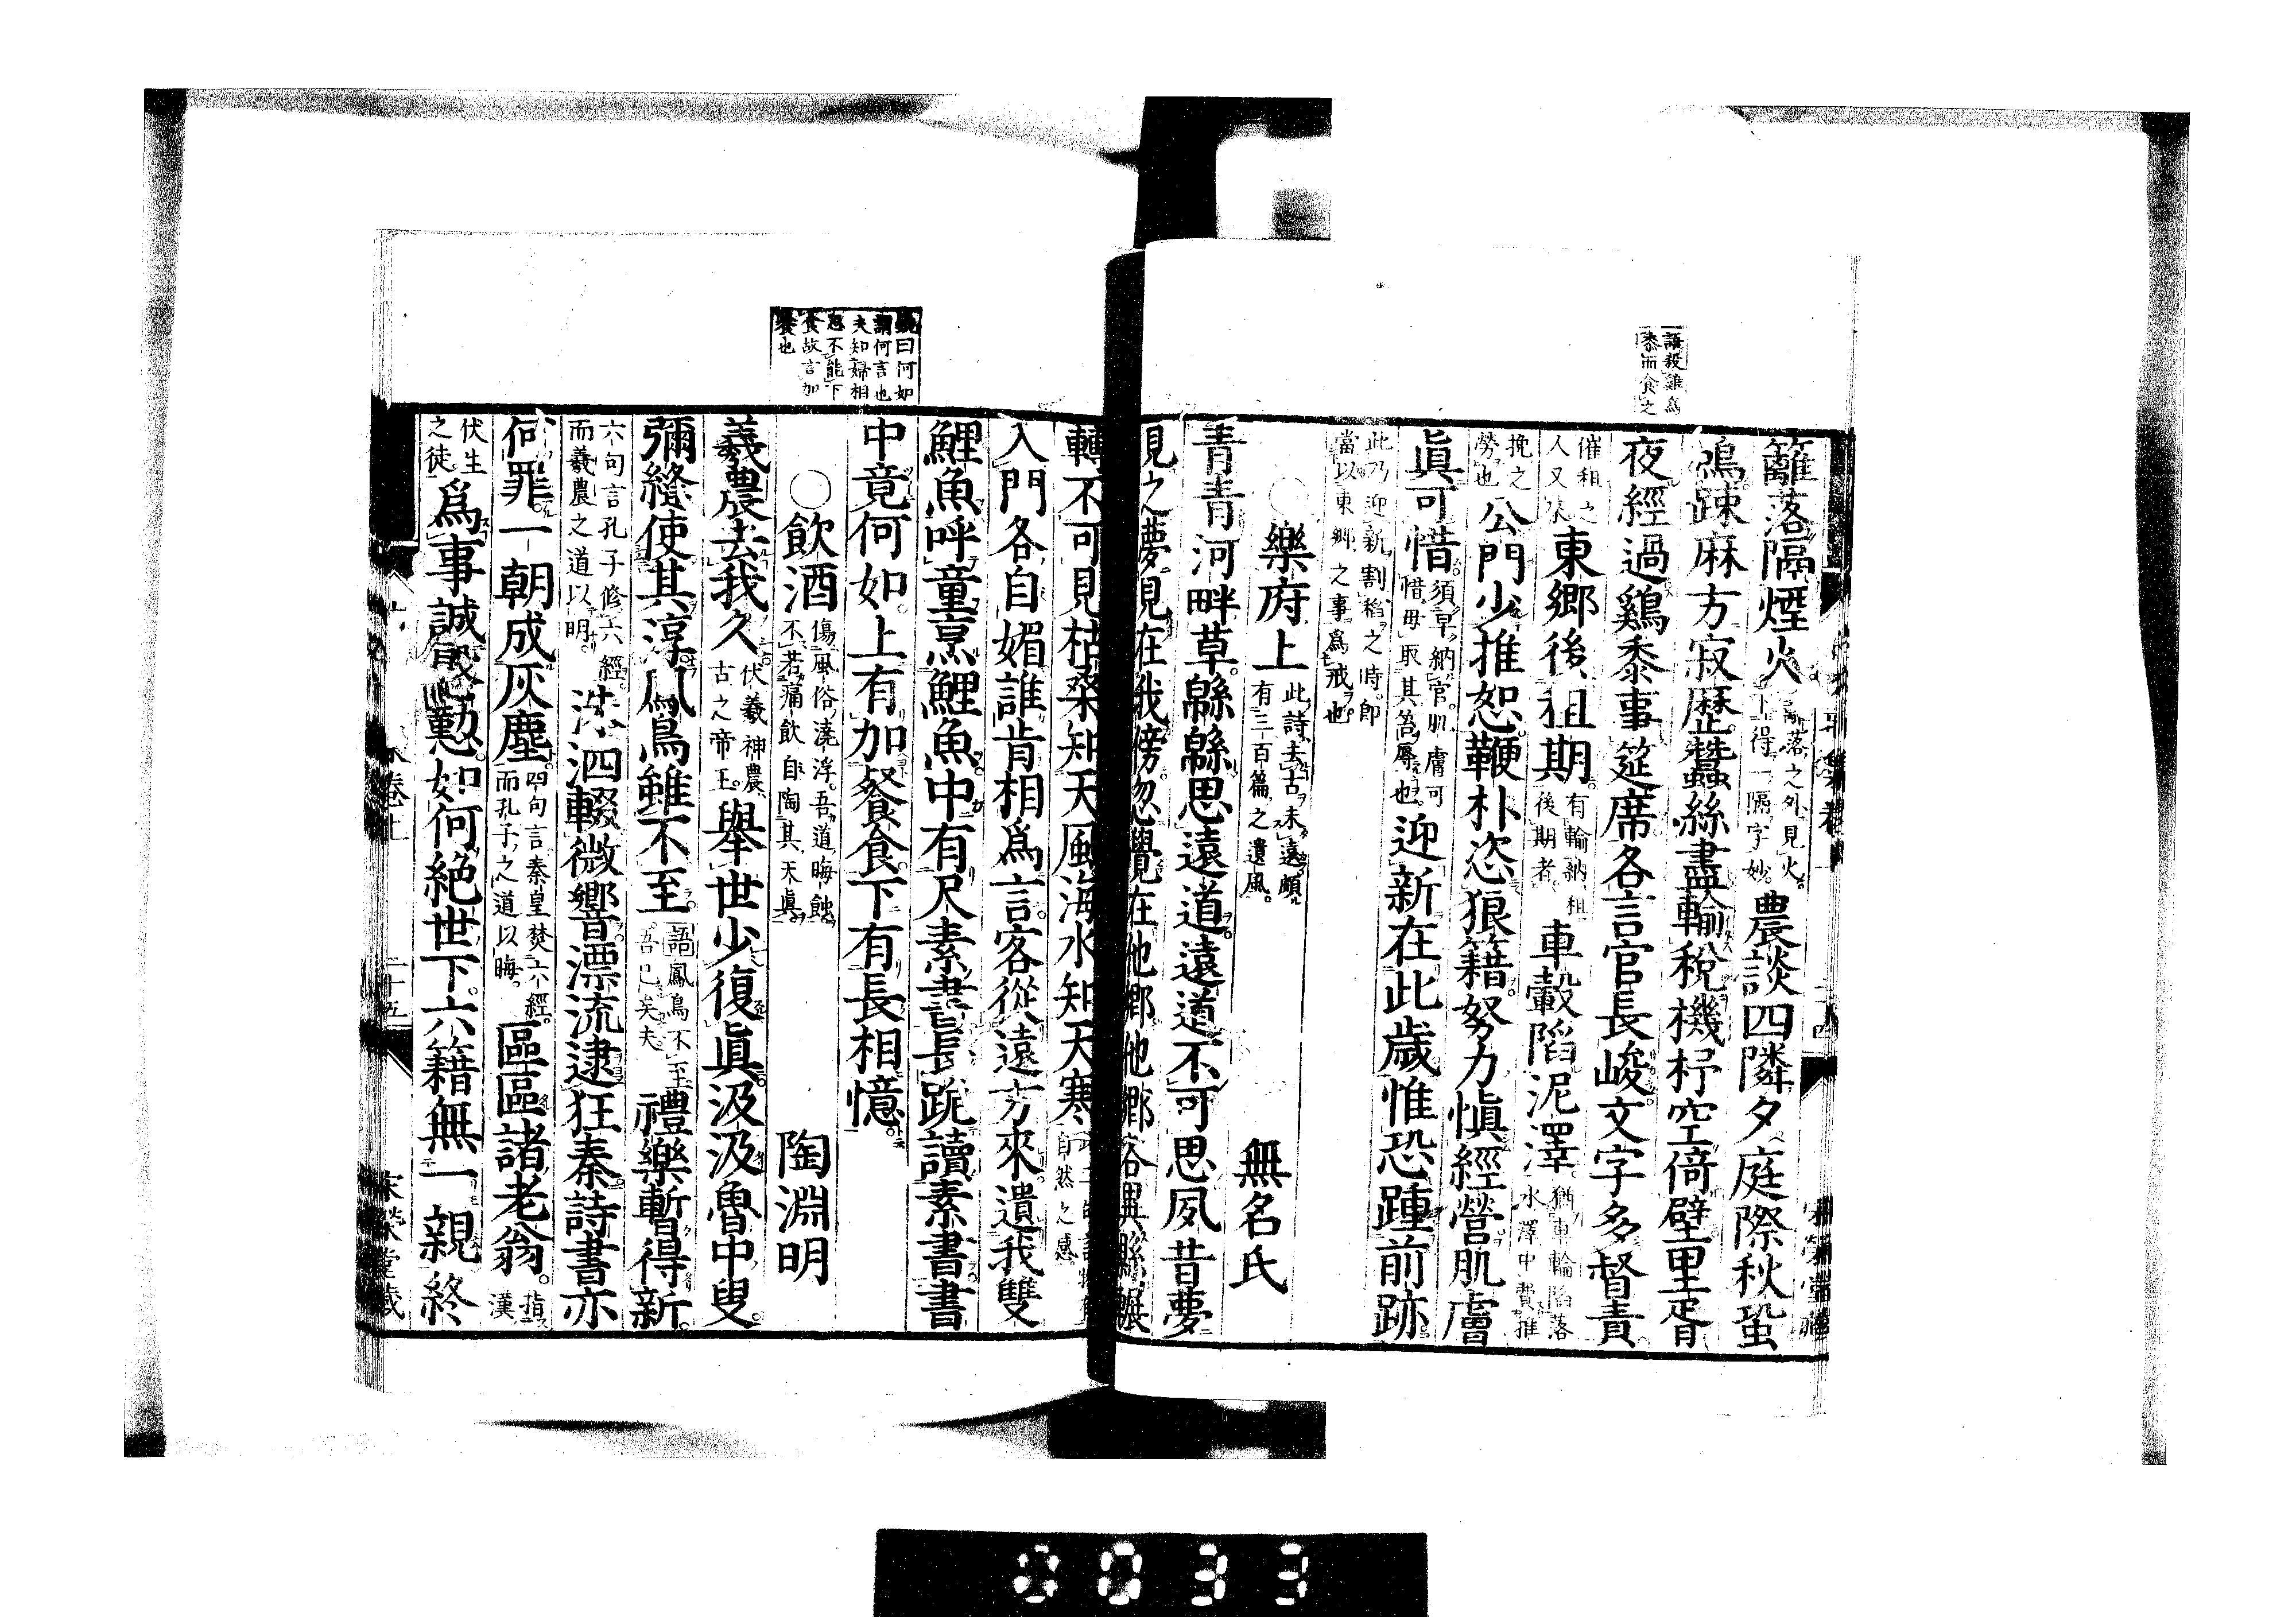 語殺雞爲
黍而食之
籬落隔煙火
落之外見火。
下得一隔字妙。
農談四隣夕庭際秋蛩
鳴踈麻方寂歷。蠶絲盡輸稅機杼空倚壁里胥
夜經過鷄黍事筵席各言官長峻文字多督責。
催租之
人又
東鄉後租期。
有輸納租
後期者。
車轂陷泥澤。
猶車輪陷落
水澤中費推
挽之
勞也
公門少推恕鞭朴恣狼籍努力愼經營肌膚
眞可惜
須早納官。肌膚可
惜毋取其笞辱也。
迎新在此歲惟恐踵前跡
此乃迎新割稻之時。卽
當以東鄉之事爲戒也
〇樂府上
此詩去古未遠頗
有三百篇之遺風。
無名氏
青青河畔草。緜緜思遠道。遠道不可思夙昔夢
見之夢見在我傍。忽覺在他鄉他鄉各異縣輾
轉不可見枯桑知天風海水知天寒
自然之感
入門各自媚誰肯相爲言。客從遠方來遺我雙
鯉魚呼童烹鯉魚中有尺素書長跪讀素書書
中竟何如。上有加餐食。下有長相憶。
曰何如
謂何言也
夫知婦相
思不能下
食故言加
餐也
〇飮酒
傷風俗澆浮。吾道晦蝕
不若痛飮自陶其天眞。
陶淵明
羲農去我久
伏羲神農、
古之帝王。
舉世少復眞汲汲魯中叟。
彌縫使其淳。鳳鳥雖不至
語鳳鳥不至
吾已矣夫
禮樂暫得新。
六句言孔子修六經。
而羲農之道以明。
洙泗輟微響漂流逮狂秦詩書亦
何罪一朝成灰塵。
四句言秦皇焚六經。
而孔子之道以晦。
區區諸老翁。
指漢
伏生
之徒
爲事誠殷懃。如何絶世下。六籍無一親終
二十五